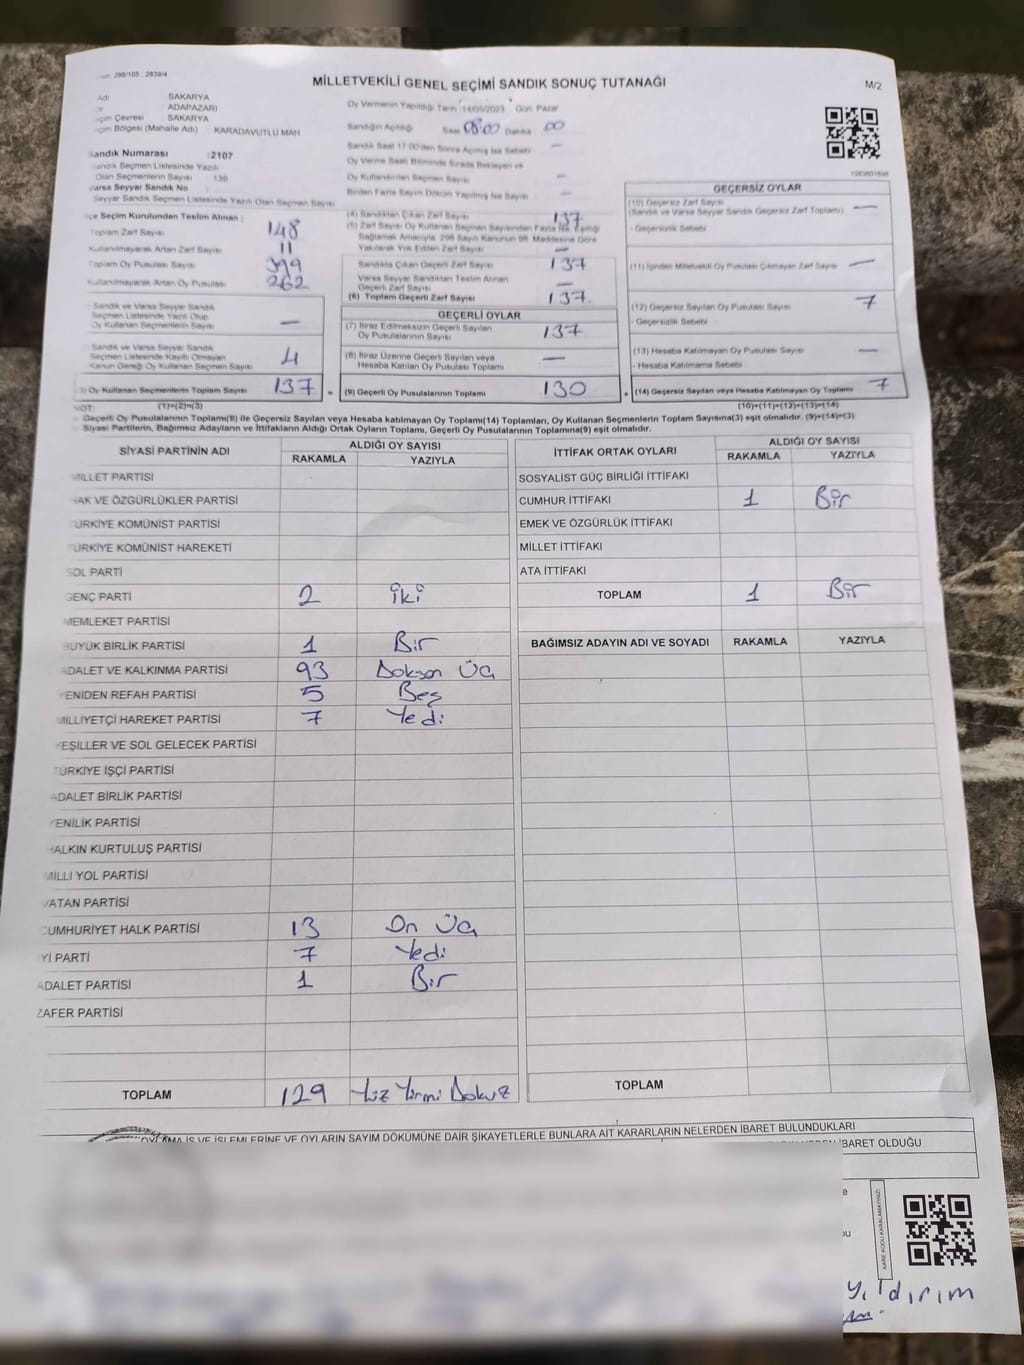 298/105 , 2839/4
MİLLETVEKİLİ GENEL SEÇİMİ SANDIK SONUÇ TUTANAĞI
M/2
Adı SAKARYA
ADAPAZARI
Seçim Çevresi SAKARYA
Seçim Bölgesi (Mahalle Adı) KARADAVUTLU MAH.
Sandık Numarası :2107
Sandık Seçmen Listesinde Yazılı
Olan Seçmenlerin Sayısı 139
Varsa Seyyar Sandık No
Seyyar Sandık Seçmen Listesinde Yazılı Olan Seçmen Sayısı
Oy Vermenin Yapıldığı Tarih 14/05/2023 Gün Pazar
Sandığın Açıldığı Saat 08:00 Dakika 00
Sandık Saat 17:00'den Sonra Açılmış İse Sebebi —
Oy Verme Saati Bitiminde Sırada Bekleyen ve
Oy Kullandırılan Seçmen Sayısı —
Birden Fazla Sayım Döküm Yapılmış İse Sayısı —
1083601698
İlçe Seçim Kurulundan Teslim Alınan :
Toplam Zarf Sayısı 148
Kullanılmayarak Artan Zarf Sayısı 11
Toplam Oy Pusulası Sayısı 399
Kullanılmayarak Artan Oy Pusulası 262
Sandık ve Varsa Seyyar Sandık
Seçmen Listesinde Yazılı Olup
Oy Kullanan Seçmenlerin Sayısı —
Sandık ve Varsa Seyyar Sandık
Seçmen Listesinde Kayıtlı Olmayan
Kanun Gereği Oy Kullanan Seçmen Sayısı 4
Oy Kullanan Seçmenlerin Toplam Sayısı 137 =
(1)+(2)=(3)
(4) Sandıktan Çıkan Zarf Sayısı 137
(5) Zarf Sayısı Oy Kullanan Seçmen Sayısından Fazla İse, Eşitliği
Sağlamak Amacıyla, 298 Sayılı Kanunun 98. Maddesine Göre
Yakılarak Yok Edilen Zarf Sayısı —
Sandıkta Çıkan Geçerli Zarf Sayısı 137
Varsa Seyyar Sandıktan Teslim Alınan
Geçerli Zarf Sayısı —
(6) Toplam Geçerli Zarf Sayısı 137.
GEÇERLİ OYLAR
(7) İtiraz Edilmeksizin Geçerli Sayılan
Oy Pusulalarının Sayısı 137
(8) İtiraz Üzerine Geçerli Sayılan veya
Hesaba Katılan Oy Pusulası Toplamı —
(9) Geçerli Oy Pusulalarının Toplamı 130 +
GEÇERSİZ OYLAR
(10) Geçersiz Zarf Sayısı
(Sandık ve Varsa Seyyar Sandık Geçersiz Zarf Toplamı) —
- Geçersizlik Sebebi
(11) İçinden Milletvekili Oy Pusulası Çıkmayan Zarf Sayısı —
(12) Geçersiz Sayılan Oy Pusulası Sayısı 7
- Geçersizlik Sebebi
(13) Hesaba Katılmayan Oy Pusulası Sayısı —
- Hesaba Katılmama Sebebi
(14) Geçersiz Sayılan veya Hesaba Katılmayan Oy Toplamı 7
(10)+(11)+(12)+(13)=(14)
NOT:
Geçerli Oy Pusulalarının Toplamı(9) ile Geçersiz Sayılan veya Hesaba katılmayan Oy Toplamı(14) Toplamları, Oy Kullanan Seçmenlerin Toplam Sayısına(3) eşit olmalıdır. (9)+(14)=(3)
Siyasi Partilerin, Bağımsız Adayların ve İttifakların Aldığı Ortak Oyların Toplamı, Geçerli Oy Pusulalarının Toplamına(9) eşit olmalıdır.
SİYASİ PARTİNİN ADI ALDIĞI OY SAYISI
RAKAMLA YAZIYLA
MİLLET PARTİSİ
HAK VE ÖZGÜRLÜKLER PARTİSİ
TÜRKİYE KOMÜNİST PARTİSİ
TÜRKİYE KOMÜNİST HAREKETİ
SOL PARTİ
GENÇ PARTİ 2 iki
MEMLEKET PARTİSİ
BÜYÜK BİRLİK PARTİSİ 1 Bir
ADALET VE KALKINMA PARTİSİ 93 Doksan Üç
YENİDEN REFAH PARTİSİ 5 Beş
MİLLİYETÇİ HAREKET PARTİSİ 7 Yedi
YEŞİLLER VE SOL GELECEK PARTİSİ
TÜRKİYE İŞÇİ PARTİSİ
ADALET BİRLİK PARTİSİ
YENİLİK PARTİSİ
HALKIN KURTULUŞ PARTİSİ
MİLLİ YOL PARTİSİ
VATAN PARTİSİ
CUMHURİYET HALK PARTİSİ 13 On Üç
İYİ PARTİ 7 Yedi
ADALET PARTİSİ 1 Bir
ZAFER PARTİSİ
TOPLAM 129 Yüz Yirmi Dokuz
İTTİFAK ORTAK OYLARI ALDIĞI OY SAYISI
RAKAMLA YAZIYLA
SOSYALİST GÜÇ BİRLİĞİ İTTİFAKI
CUMHUR İTTİFAKI 1 Bir
EMEK VE ÖZGÜRLÜK İTTİFAKI
MİLLET İTTİFAKI
ATA İTTİFAKI
TOPLAM 1 Bir
BAĞIMSIZ ADAYIN ADI VE SOYADI RAKAMLA YAZIYLA
TOPLAM
OYLAMA İŞ VE İŞLEMLERİNE VE OYLARIN SAYIM DÖKÜMÜNE DAİR ŞİKAYETLERLE BUNLARA AİT KARARLARIN NELERDEN İBARET BULUNDUKLARI
NEDEN İBARET OLDUĞU
KARE KODU KARALAMAYINIZ!
Yıldırım